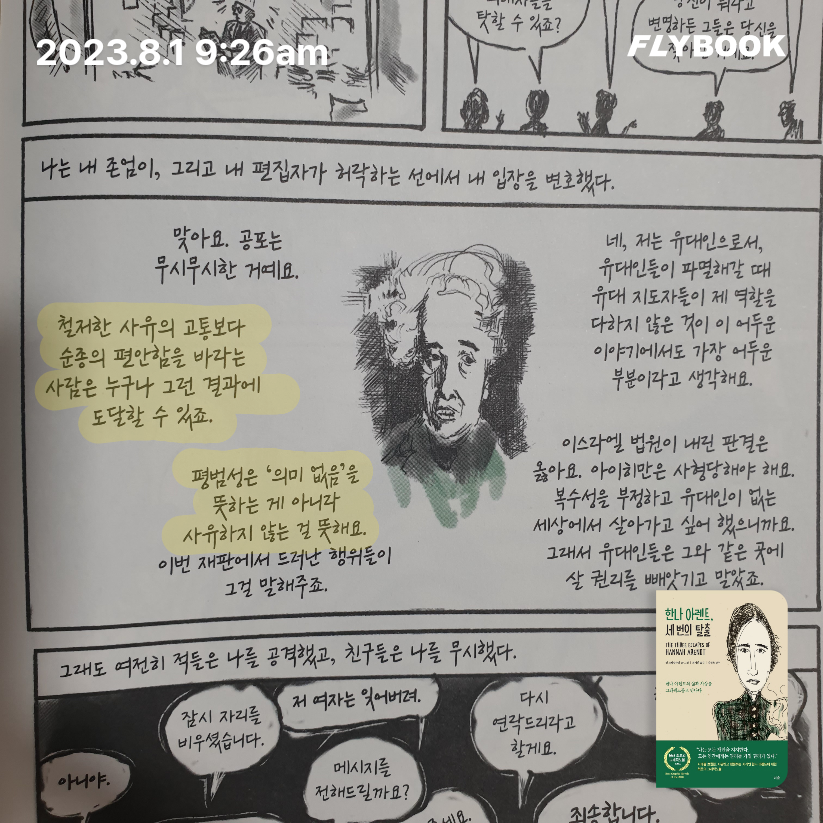 2023.8.1 9:26am
FLYBOOK
탓할 수 있죠?
변명하든 그들은 당신을
나는 내 존엄이, 그리고 내 편집자가 허락하는 선에서 내 입장을 변호했다.
맞아요. 공포는
무시무시한 거예요.
철저한 사유의 고통보다
순종의 편안함을 바라는
사람은 누구나 그런 결과에
도달할 수 있죠.
평범성은 '의미 없음'을
뜻하는 게 아니라
사유하지 않는 걸 뜻해요.
이번 재판에서 드러난 행위들이
그걸 말해주죠.
네, 저는 유대인으로서,
유대인들이 파멸해갈 때
유대 지도자들이 제 역할을
다하지 않은 것이 이 어두운
이야기에서도 가장 어두운
부분이라고 생각해요.
이스라엘 법원이 내린 판결은
옳아요. 아이히만은 사형당해야 해요.
복수성을 부정하고 유대인이 없는
세상에서 살아가고 싶어 했으니까요.
그래서 유대인들은 그와 같은 곳에
살 권리를 빼앗기고 말았죠.
그래도 여전히 적들은 나를 공격했고, 친구들은 나를 무시했다.
아니야.
잠시 자리를
비우셨습니다.
저 여자는 잊어버려.
메시지를
전해드릴까요?
다시
연락드리라고
할게요.
죄송합니다.
한나 아렌트,
세 번의 탈출
THE THREE ESCAPES OF
HANNAH ARENDT